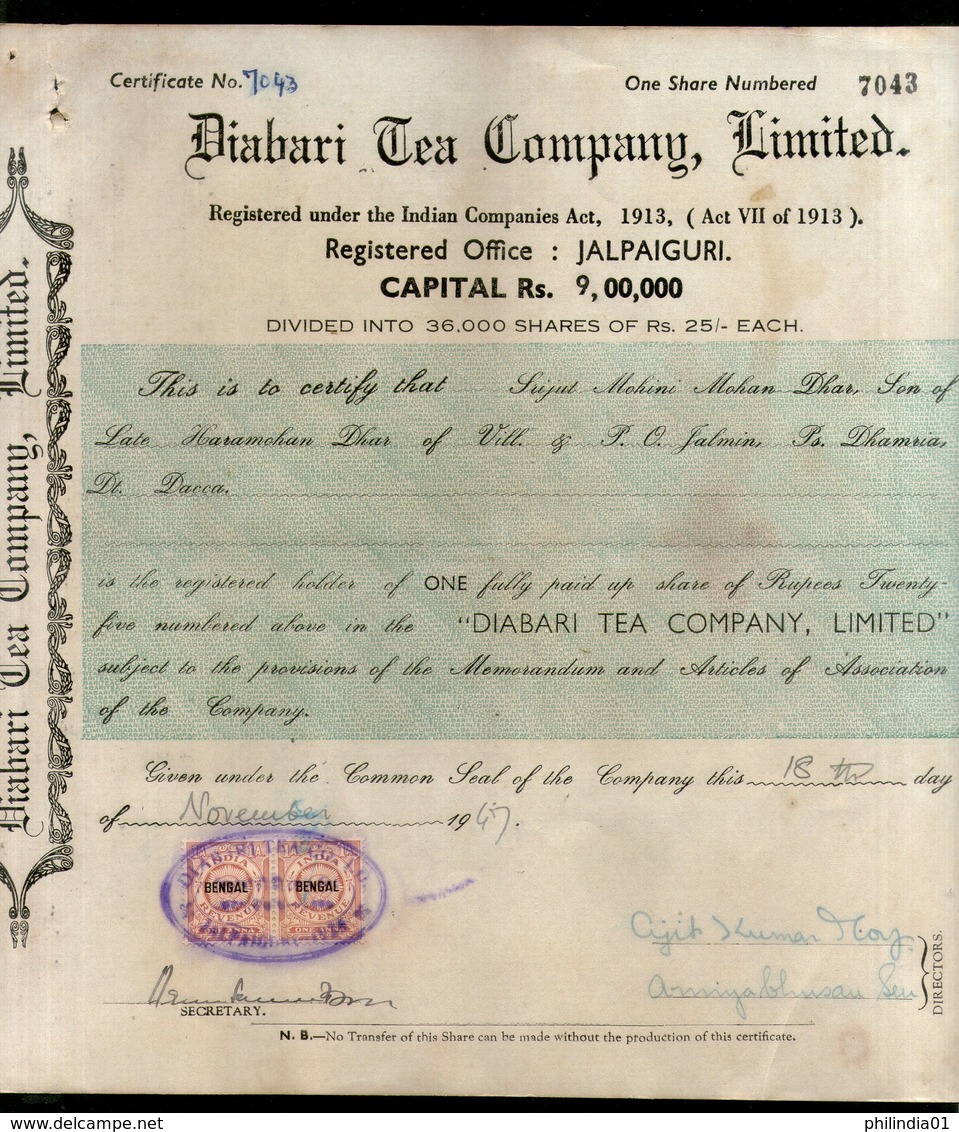 Certificate No. 7043
One Share Numbered 7043
Diabari Tea Company, Limited.
Registered under the Indian Companies Act, 1913, ( Act VII of 1913 ).
Registered Office : JALPAIGURI.
CAPITAL Rs. 9,00,000
DIVIDED INTO 36,000 SHARES OF Rs. 25/- EACH.
This is to certify that Srijut Mohini Mohan Dhar, Son of
Late Haramohan Dhar of Vill. & P. O. Jalmin, Ps. Dhamria,
Dt. Dacca.
is the registered holder of ONE fully paid up share of Rupees Twenty-
five numbered above in the "DIABARI TEA COMPANY, LIMITED"
subject to the provisions of the Memorandum and Articles of Association
of the Company.
Given under the Common Seal of the Company this 18 th day
of November 1947.
INDIA INDIA
BENGAL BENGAL
REVENUE REVENUE
ONE
Ajit Kumar
Amiya bhusan Sen
DIRECTORS.
SECRETARY.
N. B.—No Transfer of this Share can be made without the production of this certificate.
Diabari Tea Company, Limited.
philindia01